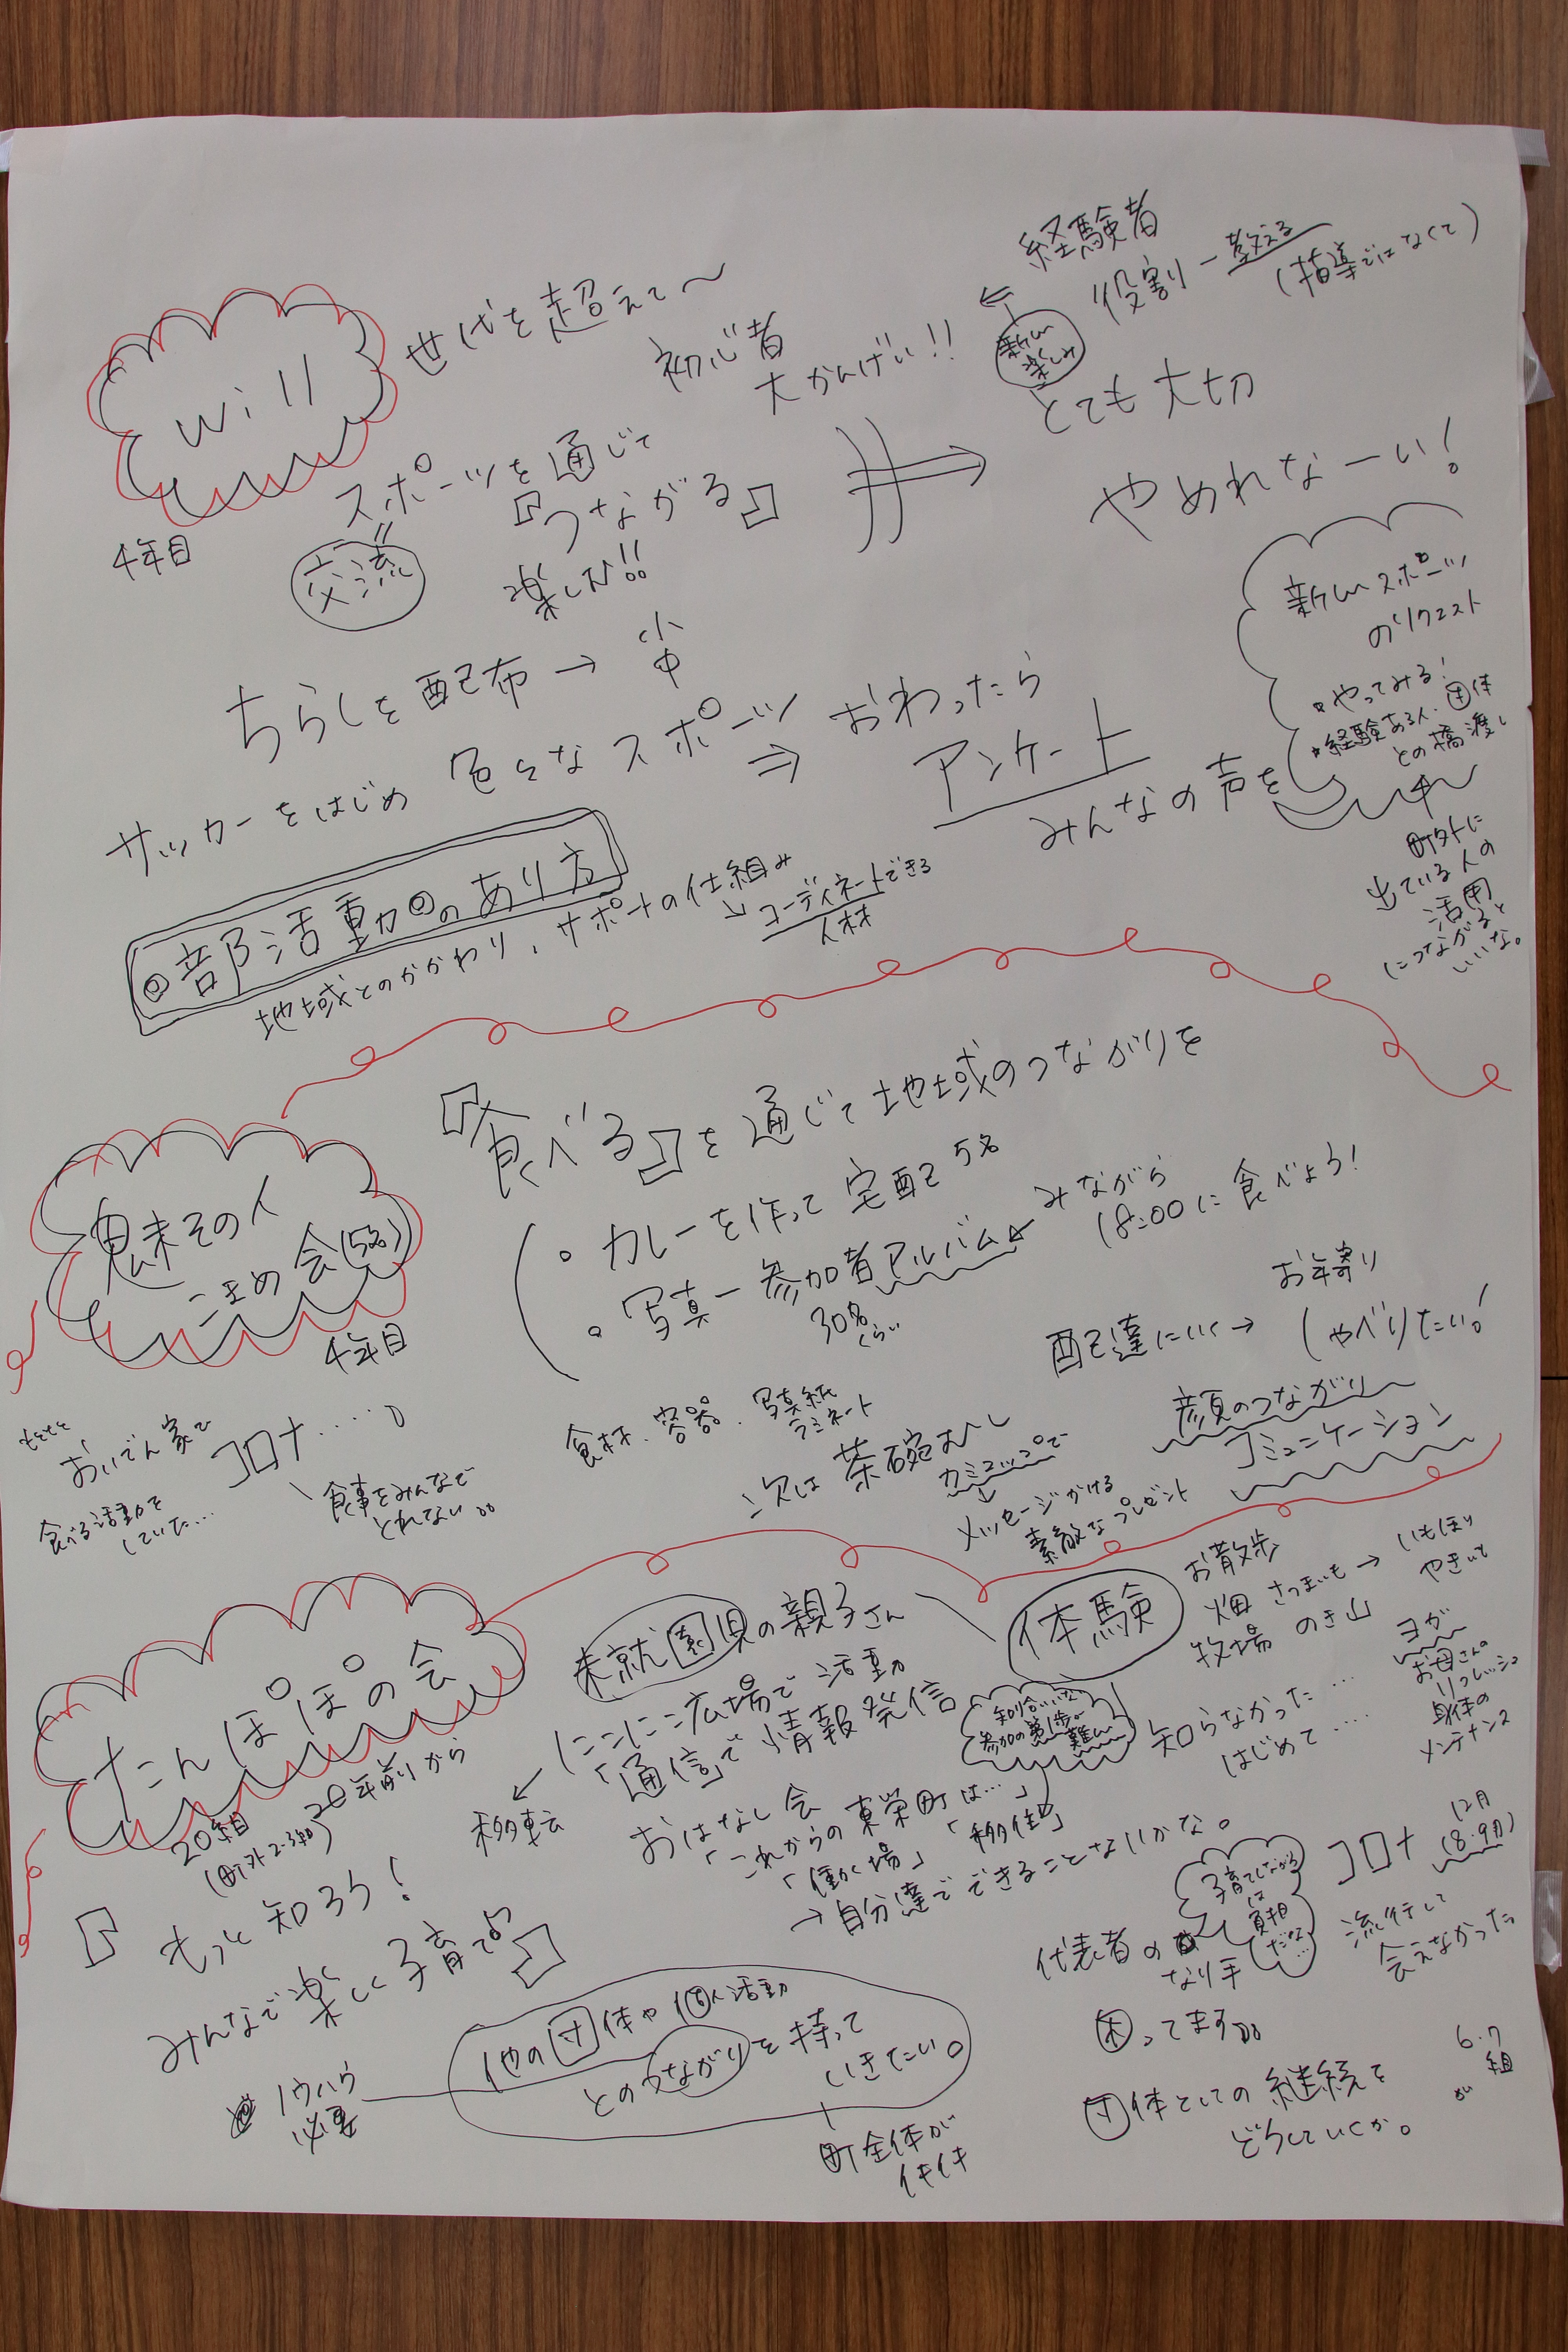 will
4年目
世代を超えて〜
初心者
大かんげい!!
経験者
役割ー教える
(指導ではなくて)
新しい
楽しみ
とても大切
やめれなーい!
スポーツを通じて
『つながる』
交流
楽しむ!!
ちらしを配布→小
中
サッカーをはじめ 色々なスポーツ
⇒ おわったら
アンケート
みんなの声を
新しいスポーツ
のリクエスト
・やってみる!
・経験ある人、団体
との橋渡し
町外に
出ている人の
活用
につながると
いいな。
◎部活動◎のあり方
地域とのかかわり、サポートの仕組み
↓コーディネートできる
人材
魅その人
こまめ会(5名)
4年目
『食べる』を通じて地域のつながりを
・カレーを作って宅配 5名
・写真ー参加者アルバム
30名
くらい
みながら
18:00に食べよう!
配達にいく→
お年寄り
しゃべりたい!
顔のつながり
コミュニケーション
もともと
おいでん家で
食べる活動を
していた…
コロナ…。
食事をみんなで
とれない。。
食材、容器、写真紙
ラミネート
次は茶碗むし
カミコップで
メッセージかける
素敵なプレゼント
たんぽぽの会
20年前から
20組
(町外2-3組)
未就園児の親子さん
にこにこ広場で活動
「通信」で情報発信
移転
おはなし会
「これからの東栄町は…」
「働く場」「移住」
→自分達でできることないかな。
体験
お散歩
畑 さつまいも→いもほり
やきいも
牧場 のき山
ヨガ
お母さんの
リフレッシュ
身体の
メンテナンス
知り合いいない
参加の第1歩が
難しい
知らなかった…
はじめて……
『もっと知ろう!
みんなで楽しく子育て♪』
他の団体や個人活動
とのつながりを持って
いきたい。
ノウハウ
必要
町全体が
イキイキ
代表者の
なり手
困ってます。。
子育てしながら
は
負担
だな…
コロナ
12月
(8.9月)
流行して
会えなかった
団体としての継続を
どうしていくか。
6.7
組
が